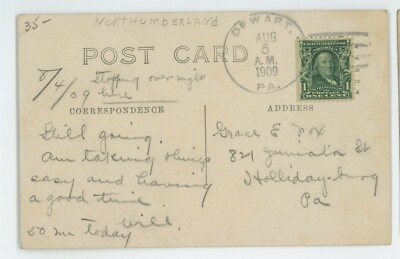 35-
NORTHUMBERLAND
POST CARD
DEWART,
AUG
5
A.M.
1909
PA.
8/4/09
Stopping over night
here
CORRESPONDENCE
ADDRESS
Still going.
am taking things
easy and having
a good time
Will
50 mi today
Grace E Fox
821 Juniata St
Hollidaysburg
Pa
1
ONE CENT
1